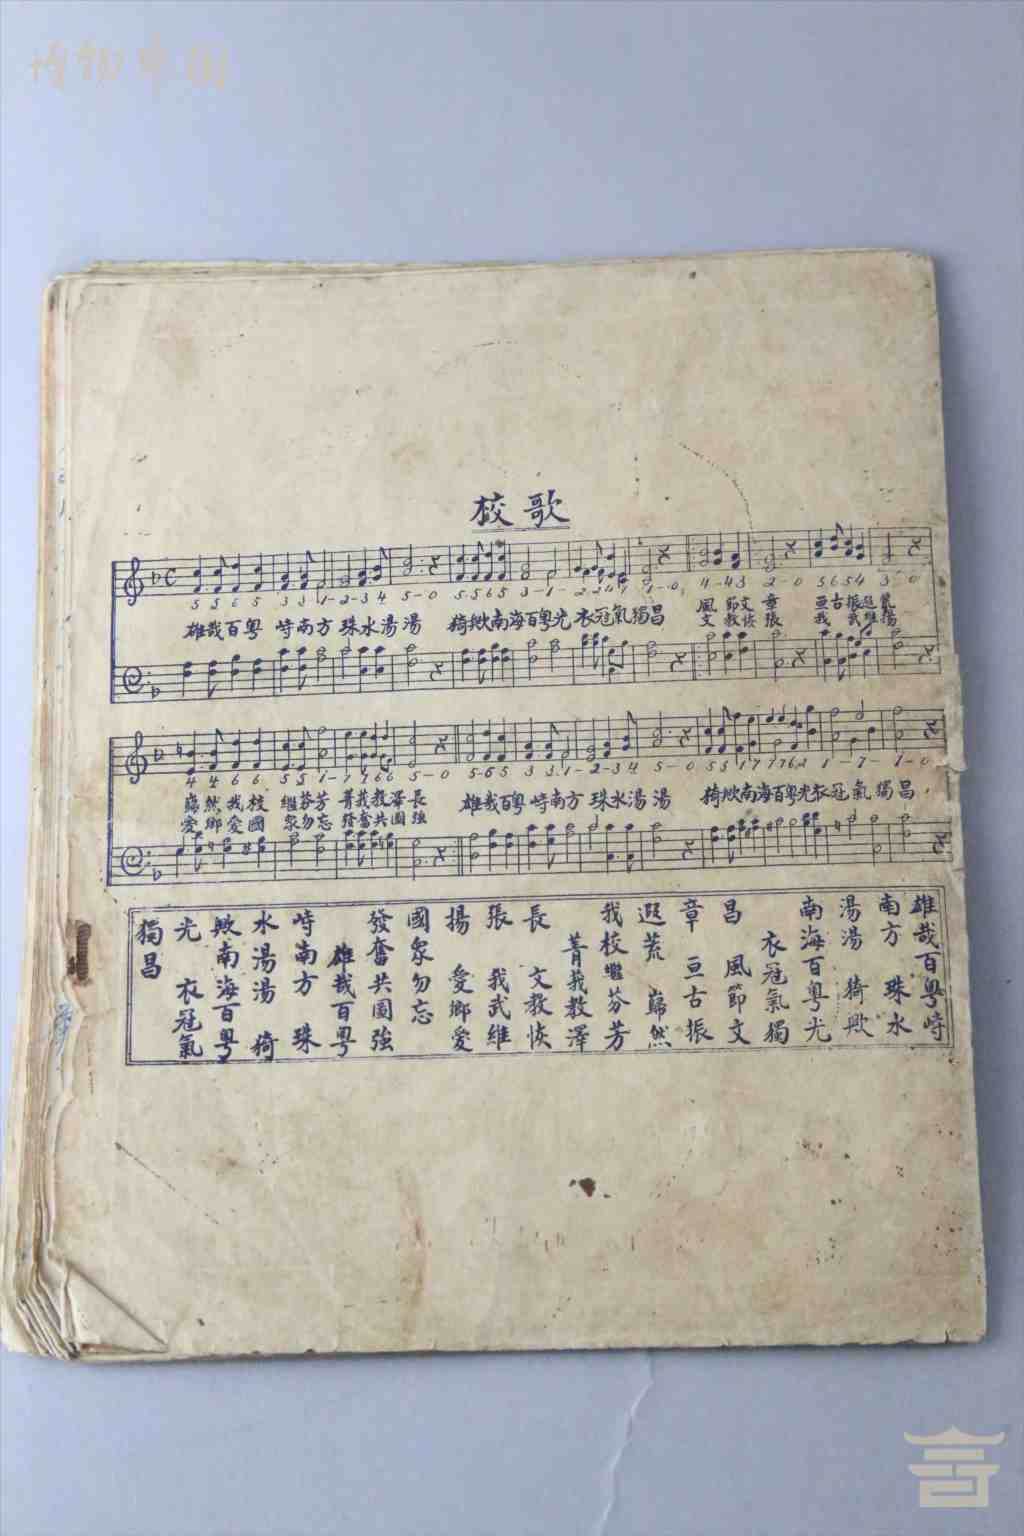 校歌
5 5 6 5 3 3 1-2-3 4 5-0 5·5 6 5 3-1-
雄哉百粵 峙南方 珠水湯湯 猗歟南海百粵光 衣冠氣獨昌 風節文章 亘古振遐荒
文教恢張 我武維揚
4 4 6 6 5 5 1-7 7 6 6 5-0 5-65 3 3·1-2-3 4 5-0
巋然我校 繼芬芳 菁莪教澤長 雄哉百粵峙南方 珠水湯湯 猗歟南海百粵光衣冠氣獨昌
愛鄉愛國 家勿忘 發奮共圖強
雄哉百粵峙
南方 珠水
湯湯 猗歟
南海百粵光
衣冠氣獨
昌 風節文
章 亘古振
遐荒 巋然
我校繼芬芳
菁莪教澤
長 文教恢
張 我武維
揚 愛鄉愛
國家勿忘
發奮共圖強
雄哉百粵
峙南方 珠
水湯湯 猗
歟南海百粵
光 衣冠氣
獨昌